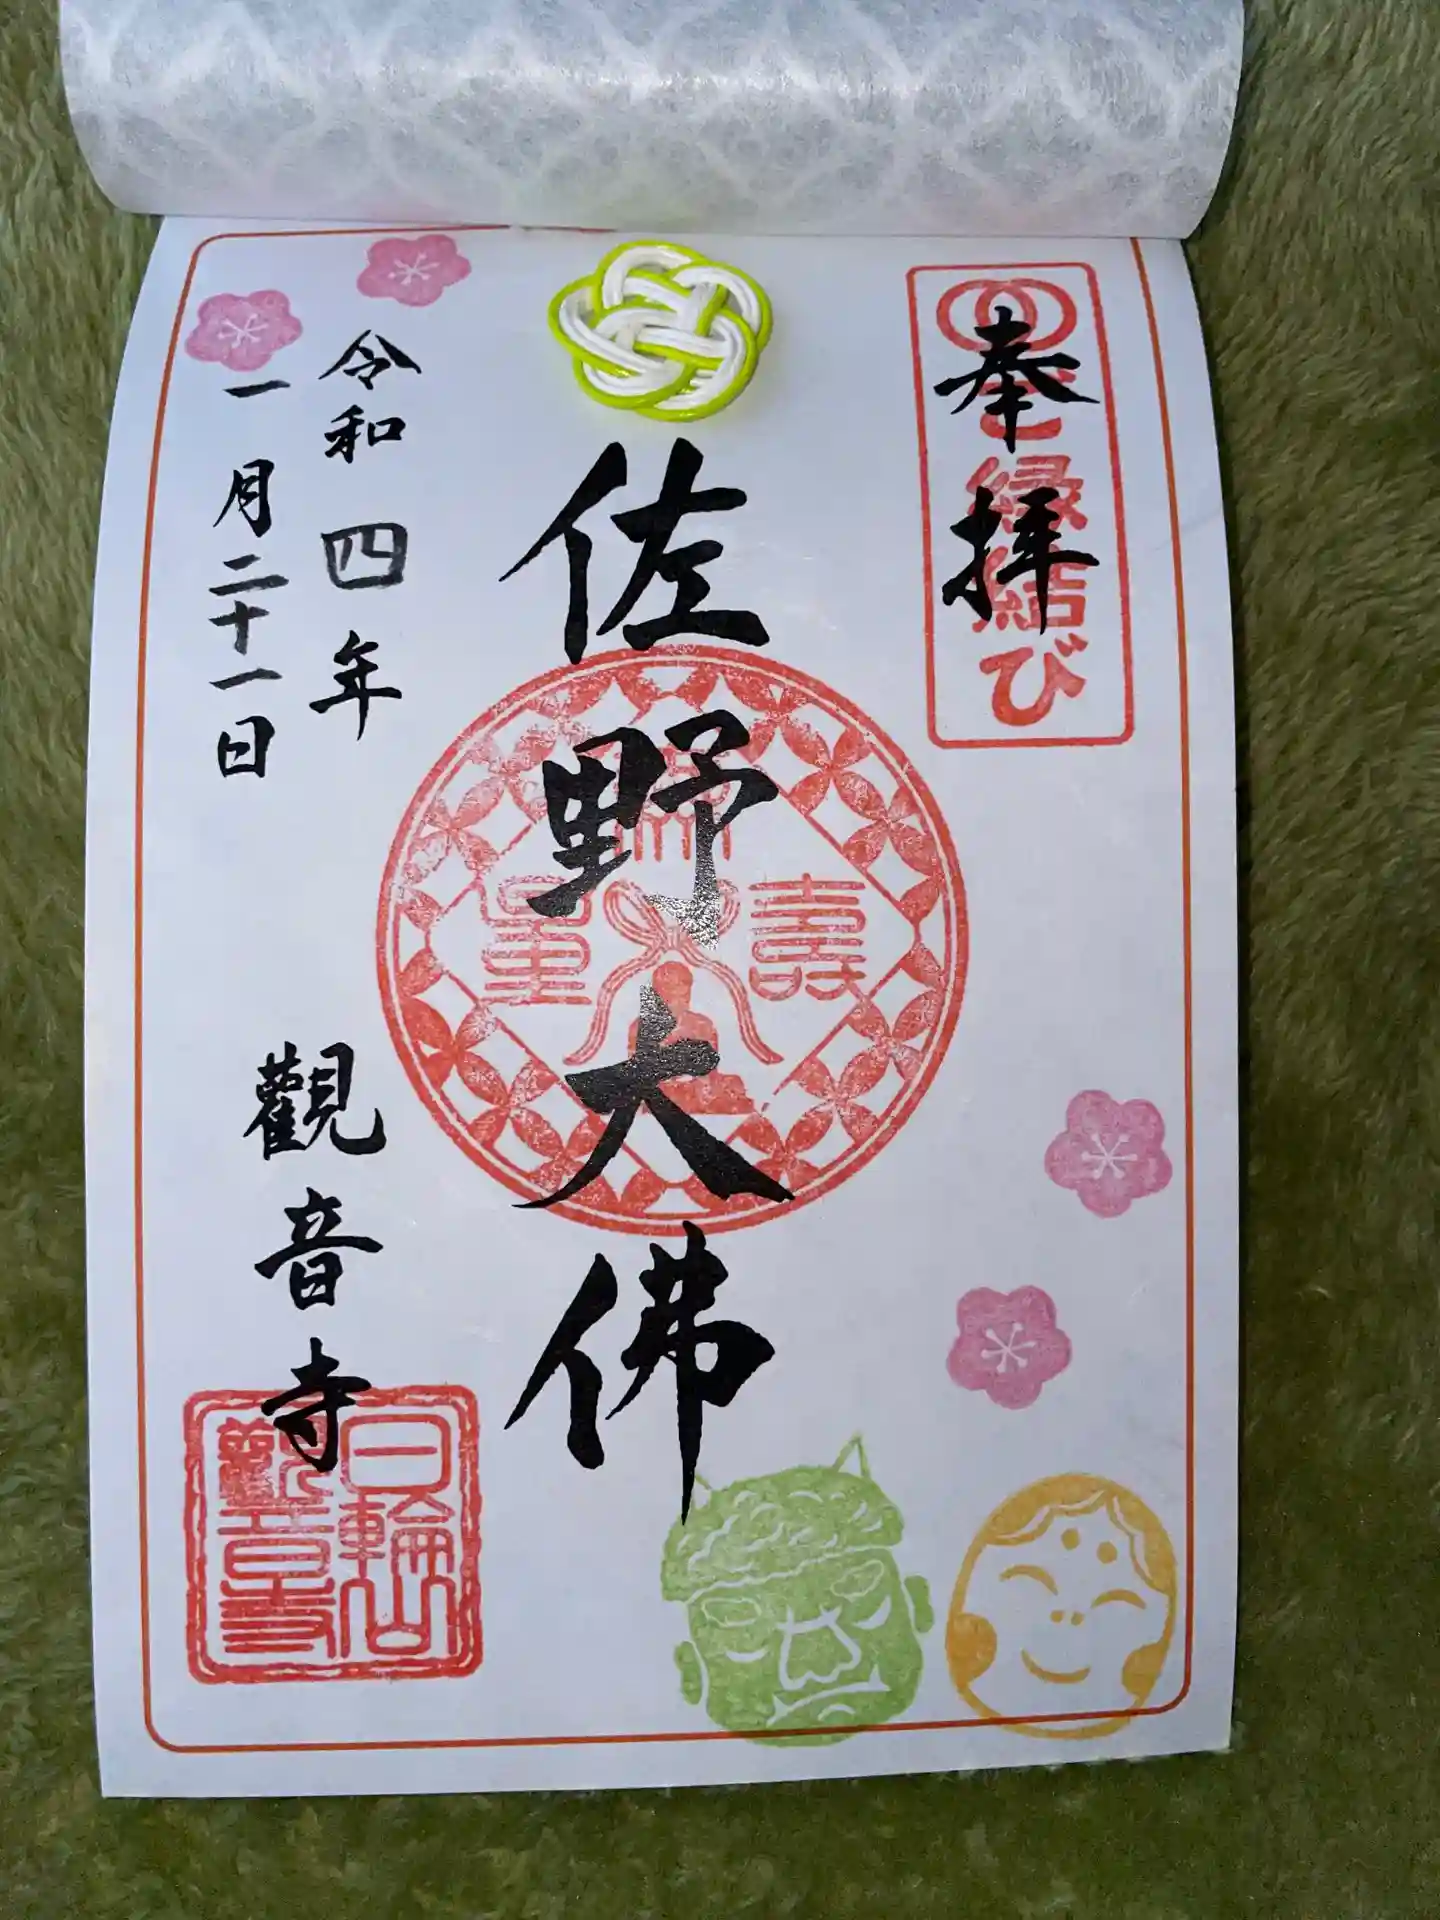 奉拝
ご縁結び
佐野大佛
無量壽
令和四年
一月二十一日
觀音寺
日輪山
觀音寺